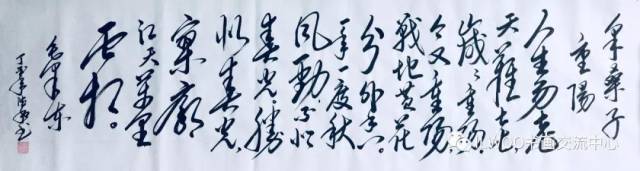 采桑子
重陽
人生易老
天難老
歲々重陽
今又重陽
戰地黃花
分外香
一年一度秋
風勁不似
春光勝
似春光
寥廓
江天萬里
霜
毛澤東
丁酉年
书画交流中心